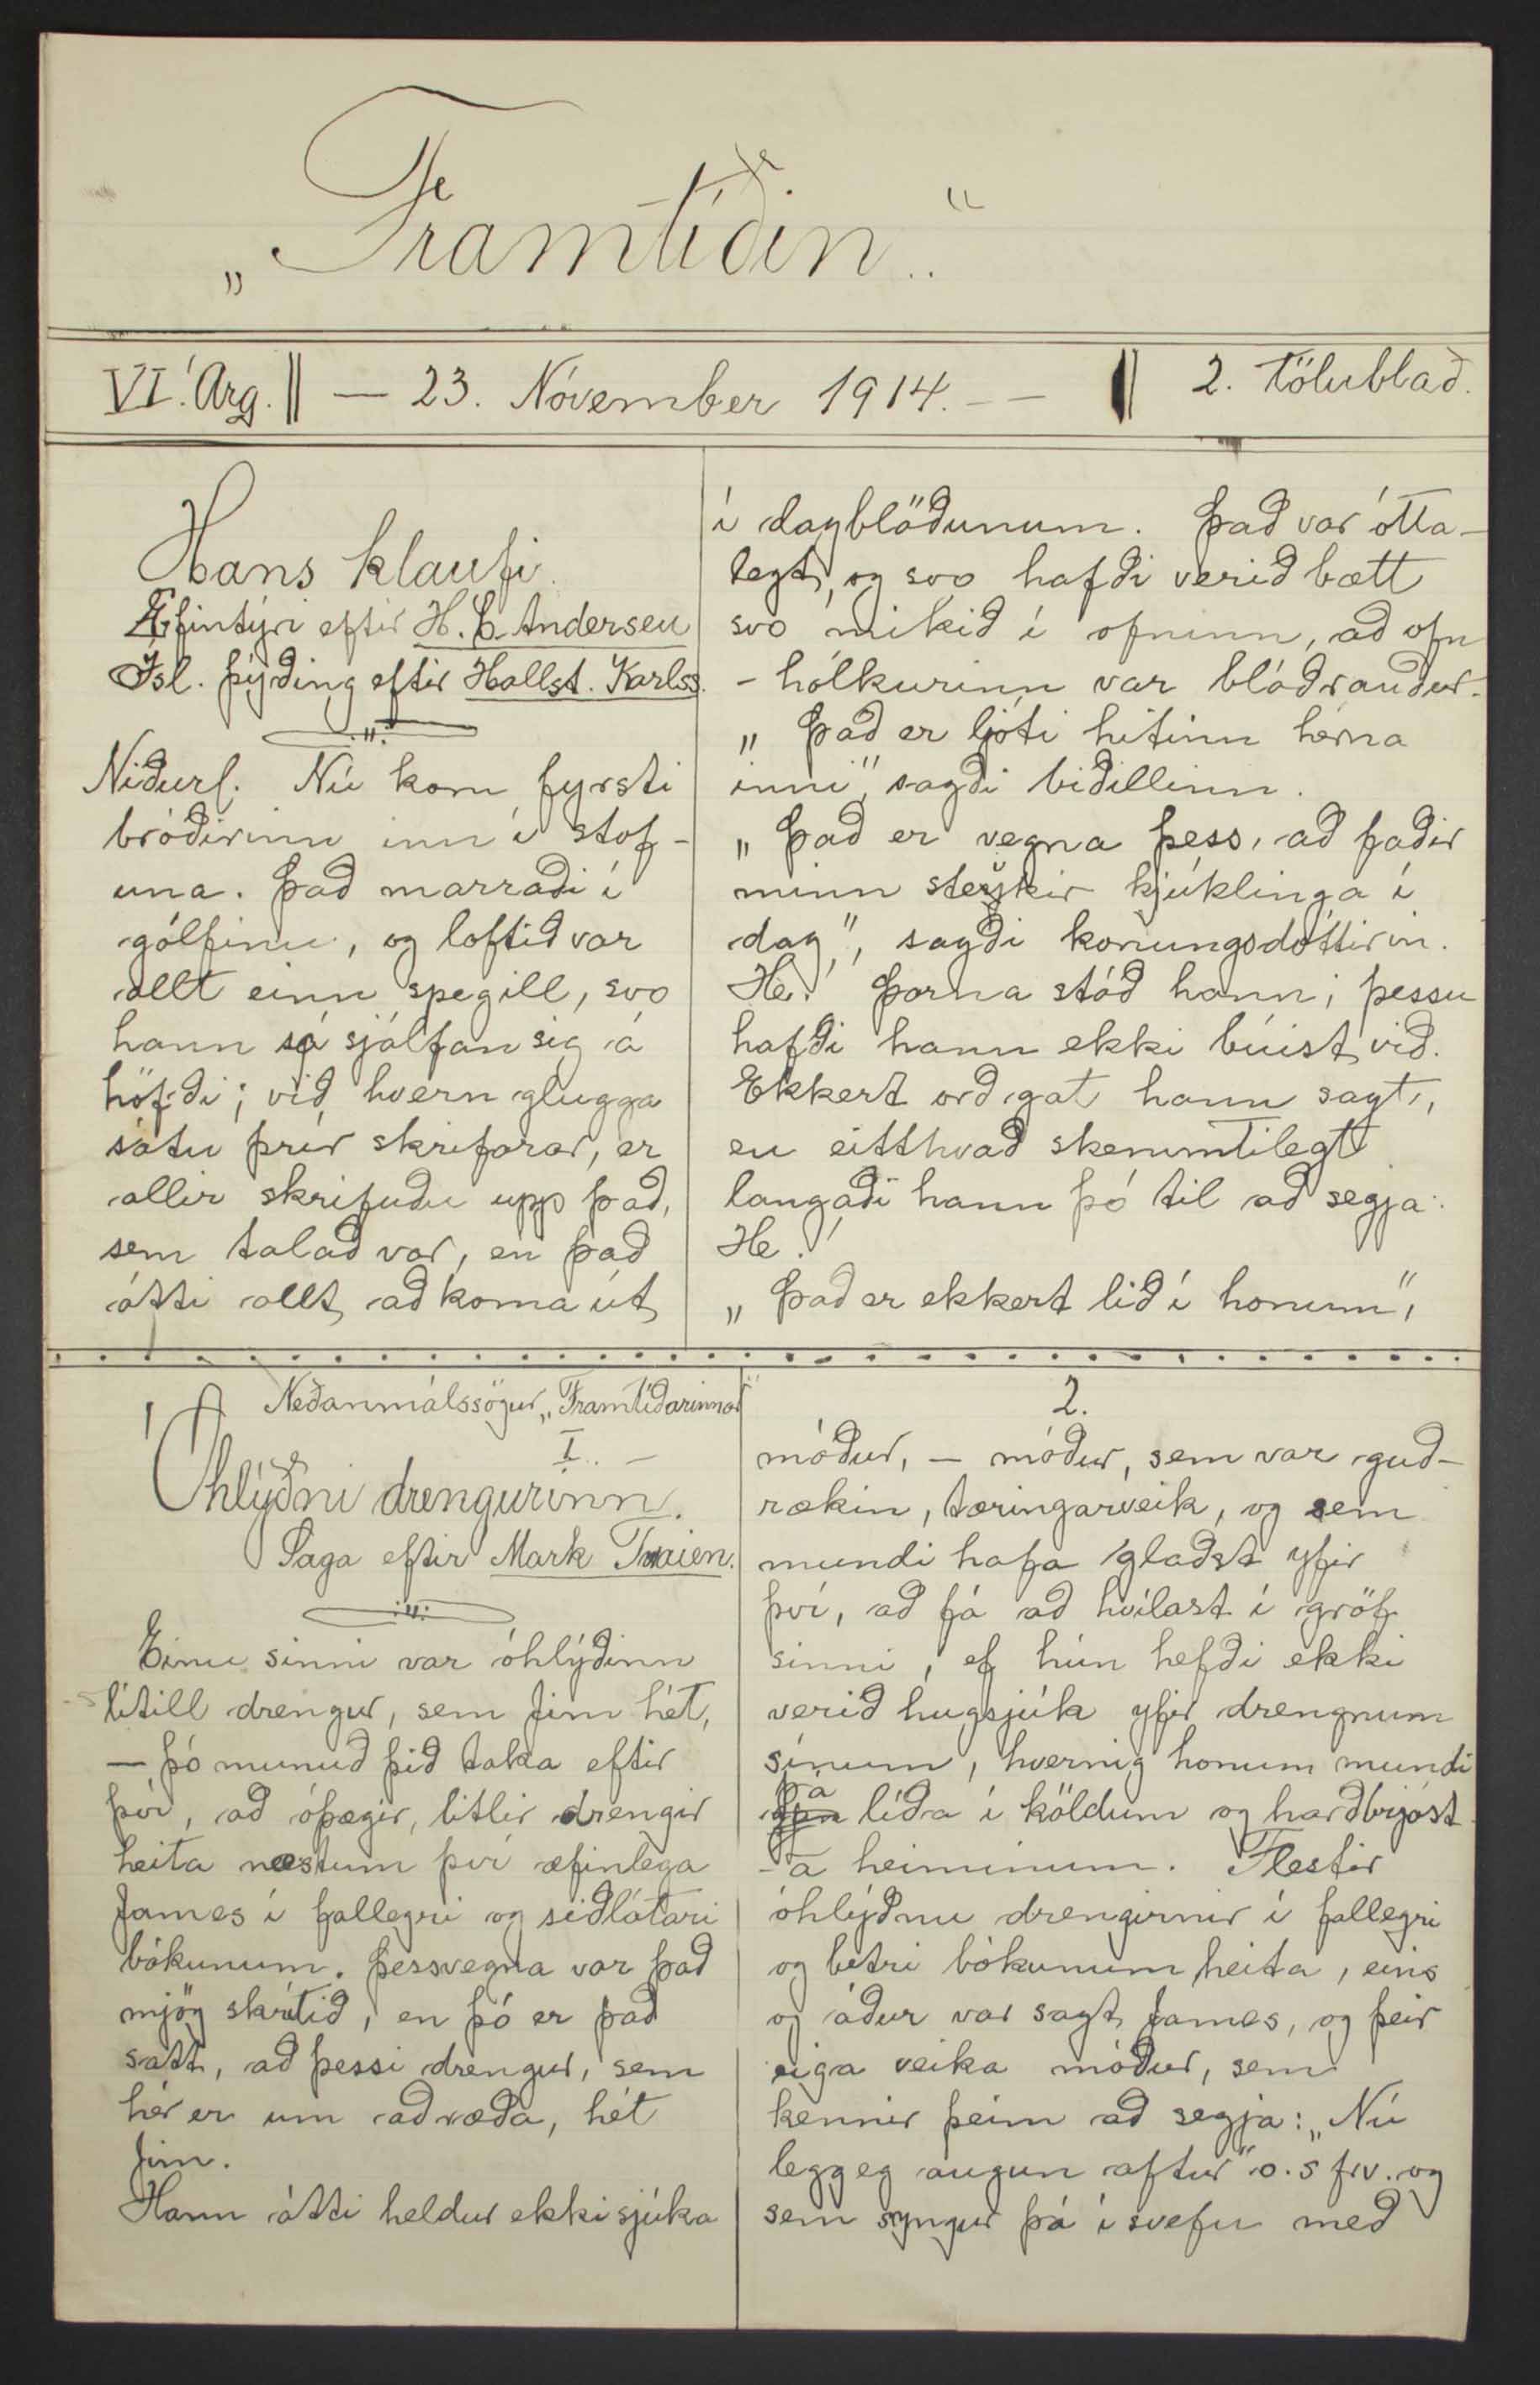 „Framtíðin.."
VI. Árg. || — 23. Nóvember 1914. — — || 2. Tölublað.
Hans klaufi.
Æfintýri eftir H. C. Andersen
Ísl. þýðing eftir Hallst. Karlss.
Niðurl. Nú kom fyrsti
bróðirinn inn í stof-
una. Það marraði í
gólfinu, og loftið var
allt einn spegill, svo
hann sá sjálfan sig á
höfði; við hvern glugga
sátu þrír skrifarar, er
allir skrifuðu upp það,
sem talað var, en það
átti allt að koma út
í dagblöðunum. Það var ótta-
legt, og svo hafði verið bætt
svo mikið í ofninn, að ofn
- hólkurinn var blóðrauður.
„Það er ljóti hitinn hérna
inni", sagði biðillinn.
„Það er vegna þess, að faðir
minn steykir kjúklinga í
dag", sagði konungsdóttirin.
He! Þarna stóð hann; þessu
hafði hann ekki búist við.
Ekkert orð gat hann sagt,
en eitthvað skemmtilegt
langaði hann þó til að segja:
He!
„Það er ekkert lið í honum",
Neðanmálssögur „Framtíðarinnar"
I. –
Óhlýðni drengurinn.
Saga eftir Mark Twaien.
Einu sinni var óhlýðinn
lítill drengur, sem Jim hét,
— þó munuð þið taka eftir
því, að óþægir, litlir drengir
heita næstum því æfinlega
James í fallegri og siðlátari
bókunum. Þessvegna var það
mjög skrítið, en þó er það
satt, að þessi drengur, sem
hér er um að ræða, hét
Jim.
Hann átti heldur ekki sjúka
2.
móður, — móður, sem var guð-
rækin, tæringarveik, og sem
mundi hafa glaðst yfir
því, að fá að hvílast í gröf
sinni, ef hún hefði ekki
verið hugsjúk yfir drengnum
sínum, hvernig honum mundi
þá líða í köldum og harðbrjóst
-a heiminum. Flestir
óhlýðnu drengirnir í fallegri
og betri bókunum heita, eins
og áður var sagt James, og þeir
eiga veika móður, sem
kennir þeim að segja: „Nú
legg eg augun aftur" o. s frv. og
sem syngur þá í svefn með